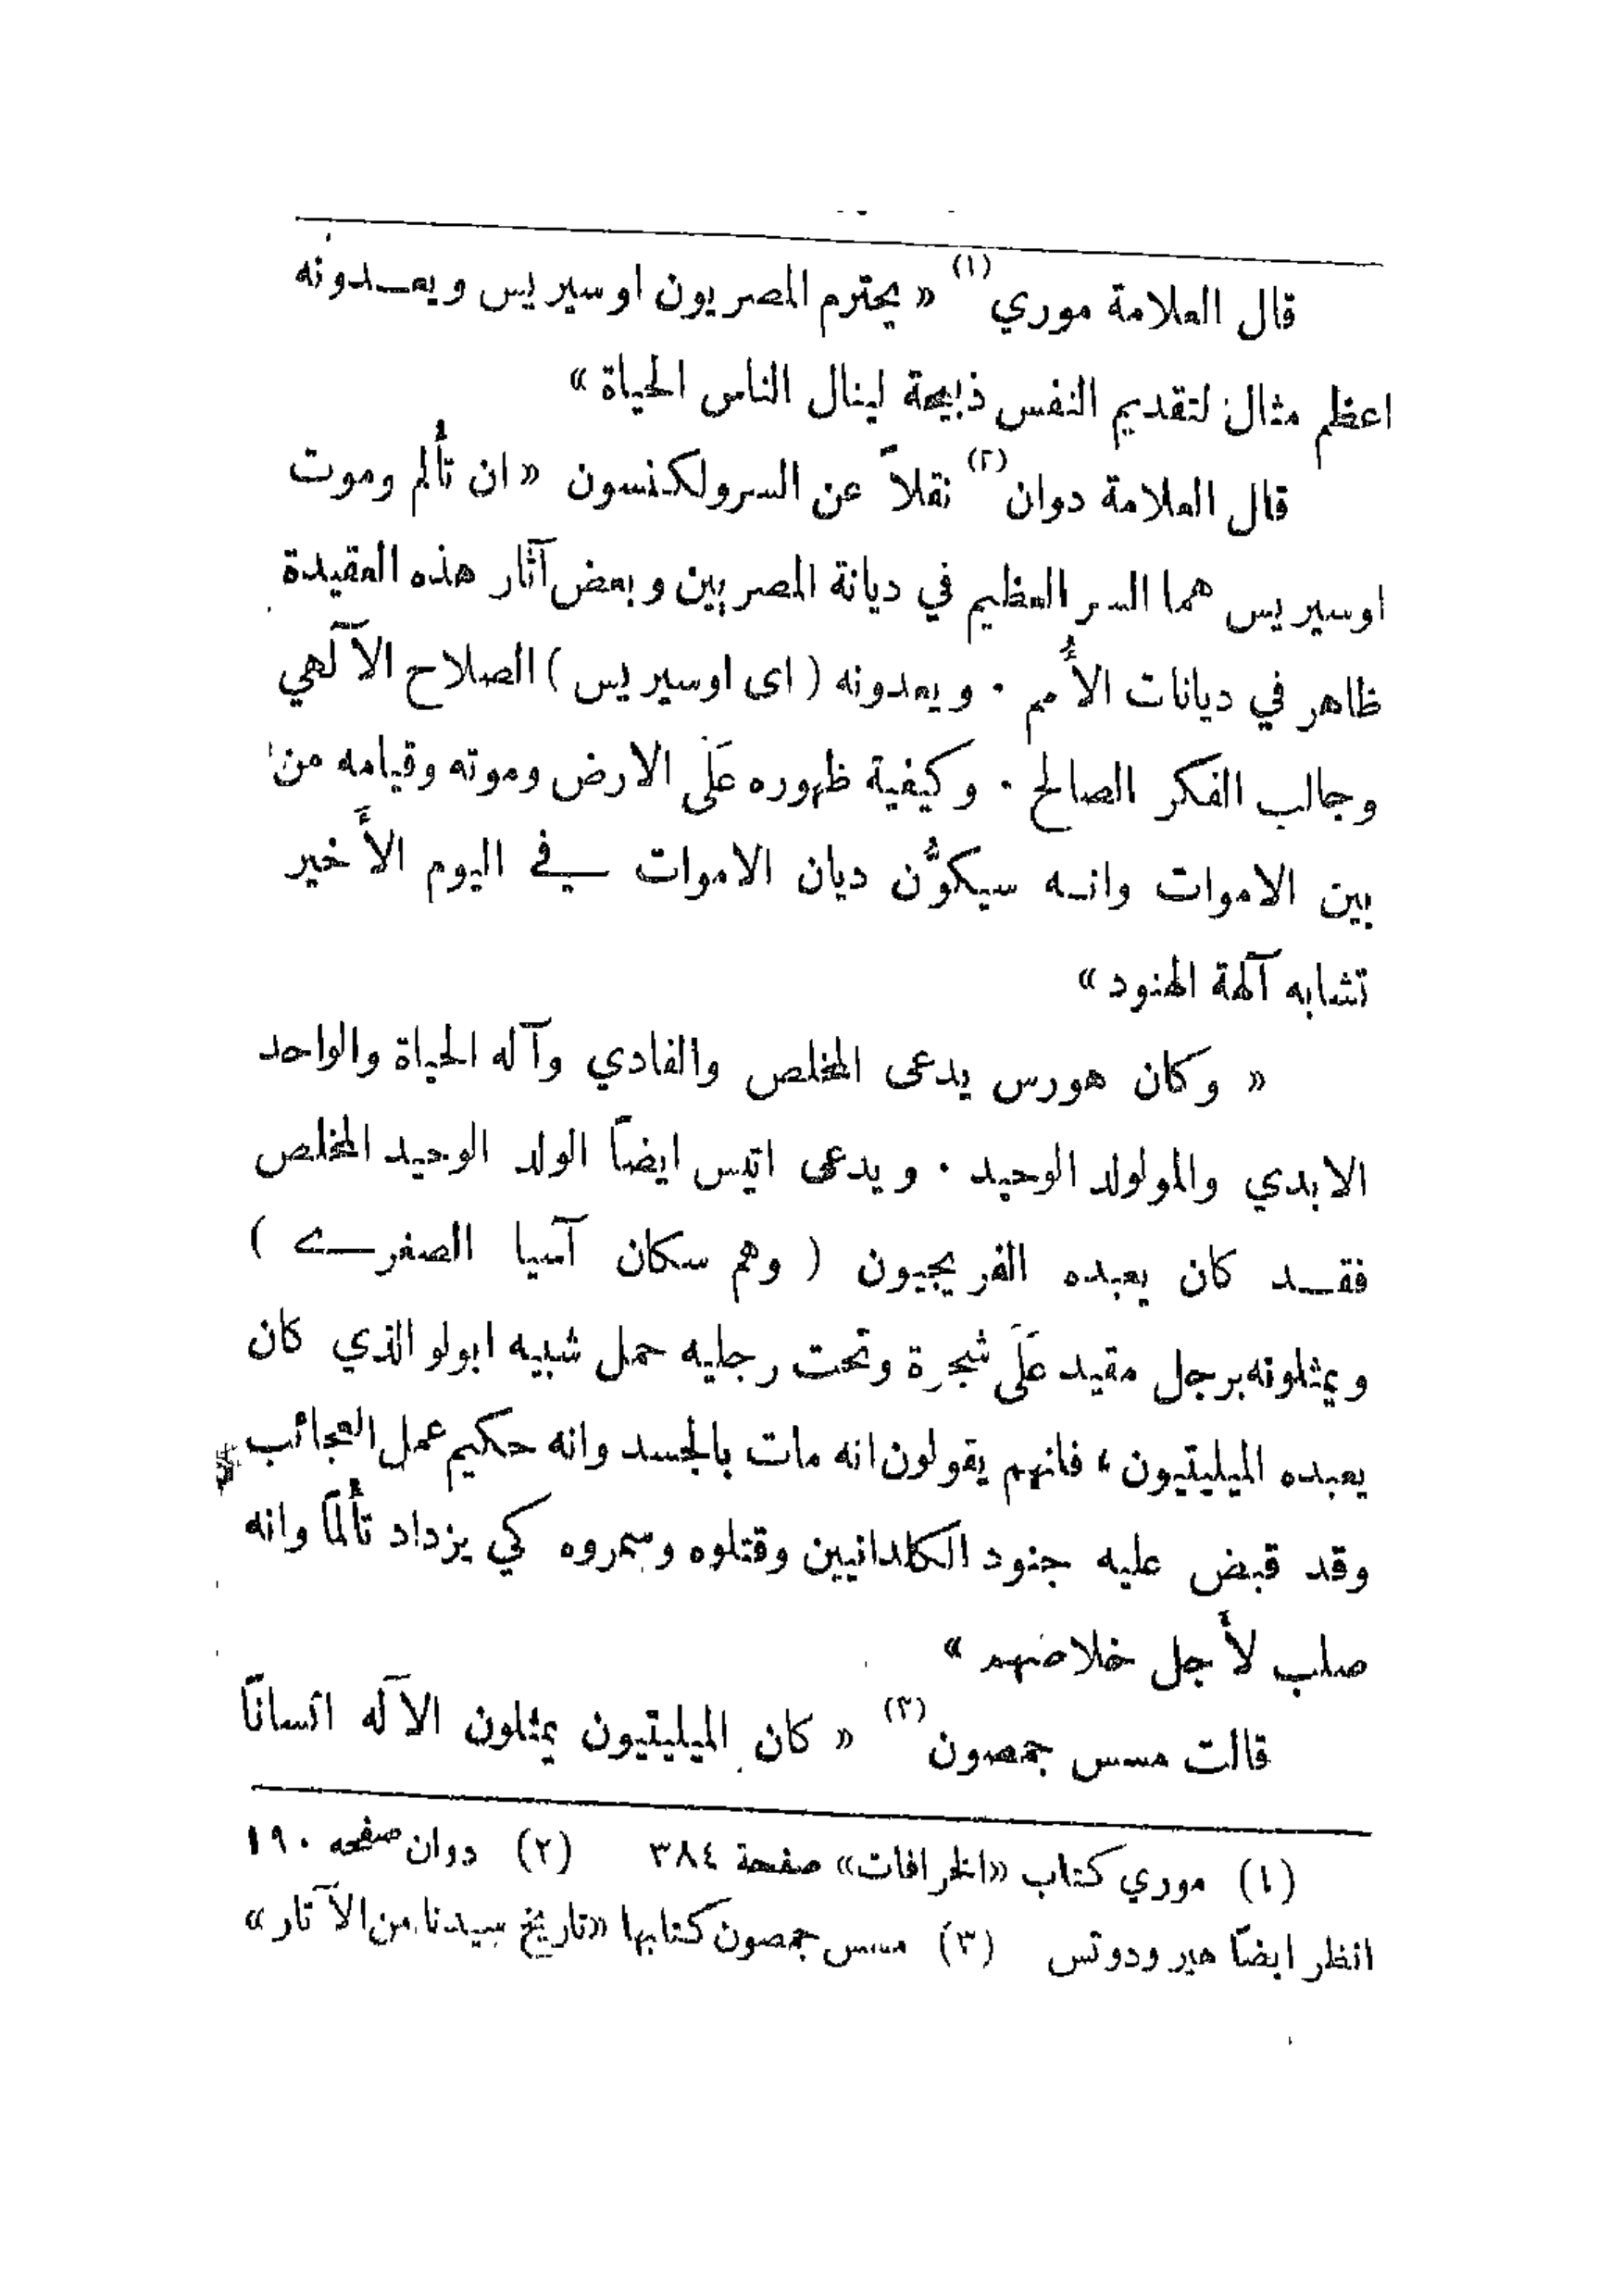 قال العلامة موري (١) « يحترم المصريون اوسيريس ويعـدونه
اعظم مثال لتقديم النفس ذبيحة لينال الناس الحياة »
قال العلامة دوان (٢) نقلاً عن السرولكنسون « ان تألم وموت
اوسيريس هما السر العظيم في ديانة المصريين وبعض آثار هذه العقيدة
ظاهر في ديانات الأُمم . ويعدونه ( اى اوسيريس ) الصلاح الآلهي
وجالب الفكر الصالح . وكيفية ظهوره عَلَى الارض وموته وقيامه من
بين الاموات وانـه سيكوُّن ديان الاموات سـفي اليوم الأَخير
تشابه آلهة الهنود »
« وكان هورس يدعى المخلص والفادي وآله الحياة والواحد
الابدي والمولولد الوحيد . ويدعى اتيس ايضاً الولد الوحيد المخلص
فقـد كان يعبده الفريجيون ( وهم سكان آسيا الصغرـے )
ويمثلونه برجل مقيد عَلَى شجرة وتحت رجليه حمل شبيه ابولو الذي كان
يعبده الميليتيون ، فانهم يقولون انه مات بالجسد وانه حكيم عمل العجائب
وقد قبض عليه جنود الكلدانيين وقتلوه وسمروه كي يزداد تألماً وانه
صلب لأَجل خلاصهم »
قالت مسس جمصون (٣) « كان الميليتيون يمثلون الآله انساناً
(١) موري كتاب «الخرافات» صفحة ٣٨٤ (٢) دوان صفحه ١٩٠
انظر ايضاً هيرودوتس (٣) مسس جمصون كتابها «تاريخ سيدنا من الآثار»